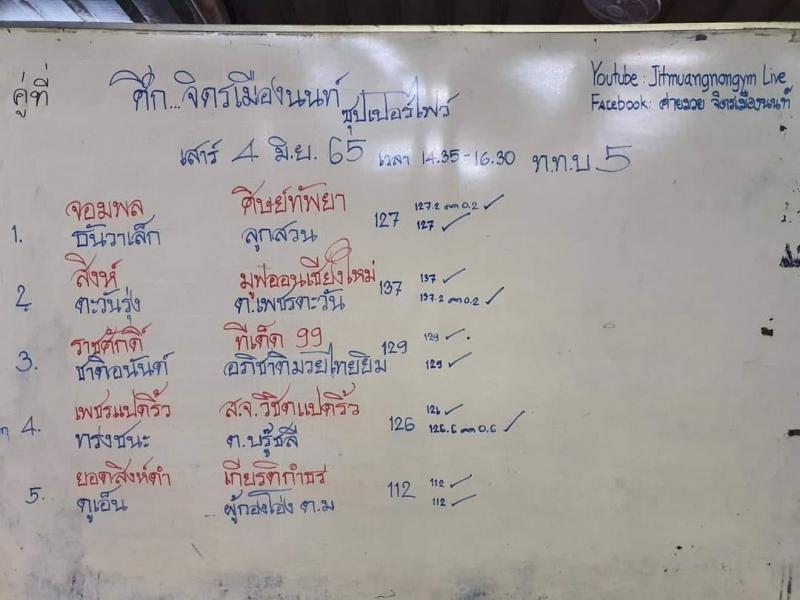 คู่ที่ ศึก...จิตรเมืองนนท์ ซุปเปอร์ไฟว์
Youtube : Jitmuangnongym Live
Facebook : ค่ายมวย จิตรเมืองนนท์
เสาร์ 4 มิ.ย. 65 เวลา 14.35-16.30 ท.ท.บ 5
1. จอมพล ศิษย์ทัพยา 127 127.2 ลด 0.2 ✓
ธันวาเล็ก ลูกสวน 127 ✓
2 สิงห์ มูฟออนเชียงใหม่ 137 137 ✓
ตะวันรุ่ง ต.เพชรตะวัน 137.2 ลด 0.2 ✓
3. ราชศักดิ์ ทีเด็ด 99 129 129 ✓
ชาติอนันต์ อภิชาติมวยไทยยิม 129 ✓
4. เพชรแปดริ้ว ส.จ.วิชิตแปดริ้ว 126 126 ✓
ทรงชนะ ต.บรู๊ชลี 126.6 ลด 0.6 ✓
5. ยอดสิงห์ดำ เกียรติกำธร 112 112 ✓
ดูเอ็น ผู้กองโอ่ง ต.ม 112 ✓